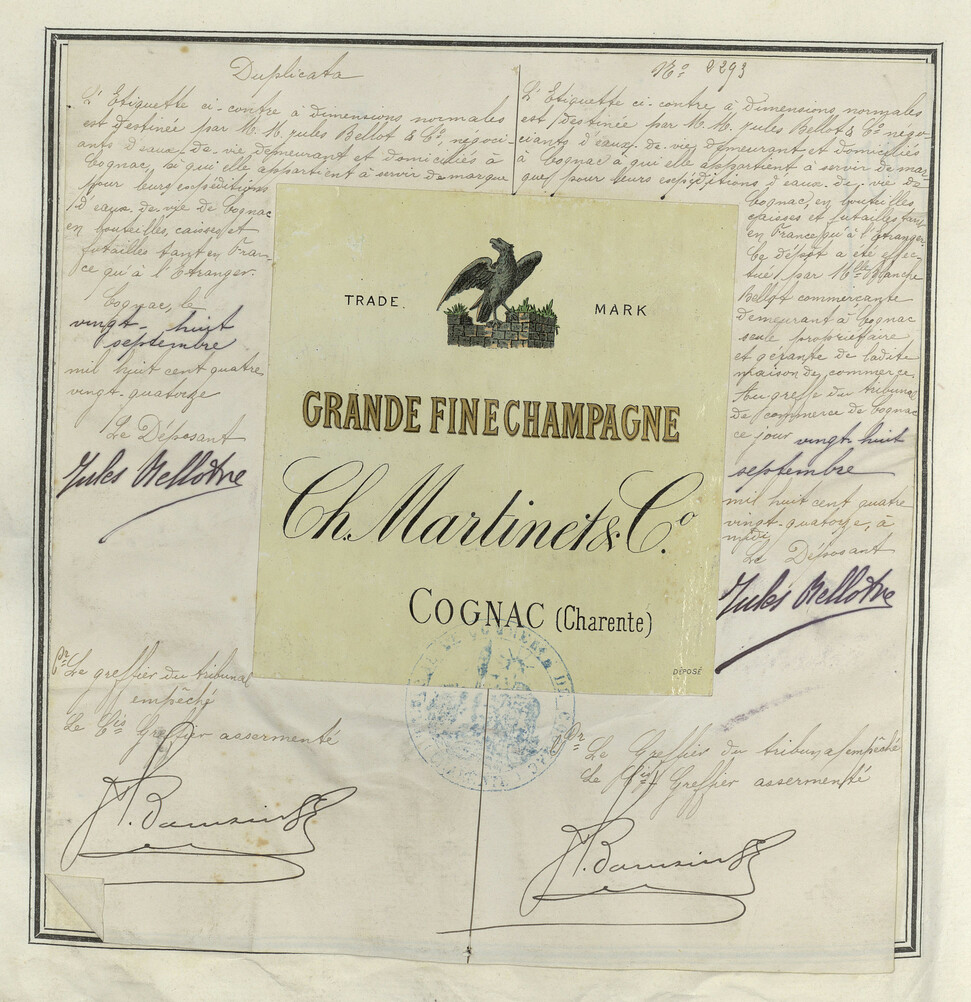 Duplicata
L'Etiquette ci-contre à dimensions normales
est destinée par M.M. Jules Bellot & Cº, négoci-
ants d'eaux-de-vie demeurant et domiciliés à
Cognac, à qui elle appartient à servir de marque
pour leurs expéditions
d'eaux-de-vie de Cognac
en bouteilles, caisses et
futailles tant en Fran-
ce qu'à l'Etranger.
Cognac, le
vingt-huit
septembre
mil huit cent quatre
vingt-quatorze
Le Déposant
Jules Bellot
Pr Le greffier du tribunal
empêché
Le Cis Greffier assermenté
Nº 2293
L'Etiquette ci-contre, à dimensions normales
est destinée par M.M. Jules Bellot & Cº négo-
ciants d'eaux-de-vie demeurant et domiciliés
à Cognac à qui elle appartient à servir de mar-
que pour leurs expéditions d'eaux-de-vie de
Cognac, en bouteilles,
caisses et futailles tant
en France qu'à l'Etranger.
Ce dépôt a été effec-
tué par Mlle Blanche
Bellot commerçante
demeurant à Cognac
seule propriétaire
et gérante de ladite
maison de commerce.
Au greffe du tribunal
de commerce de Cognac
ce jour vingt-huit
septembre
mil huit cent quatre
vingt-quatorze, à
midi
Le Déposant
Jules Bellot
Pr Le Greffier du tribunal empêché
Le Cis Greffier assermenté
TRADE MARK
GRANDE FINE CHAMPAGNE
Ch. Martinet & Cº
COGNAC (Charente)
DÉPOSÉ